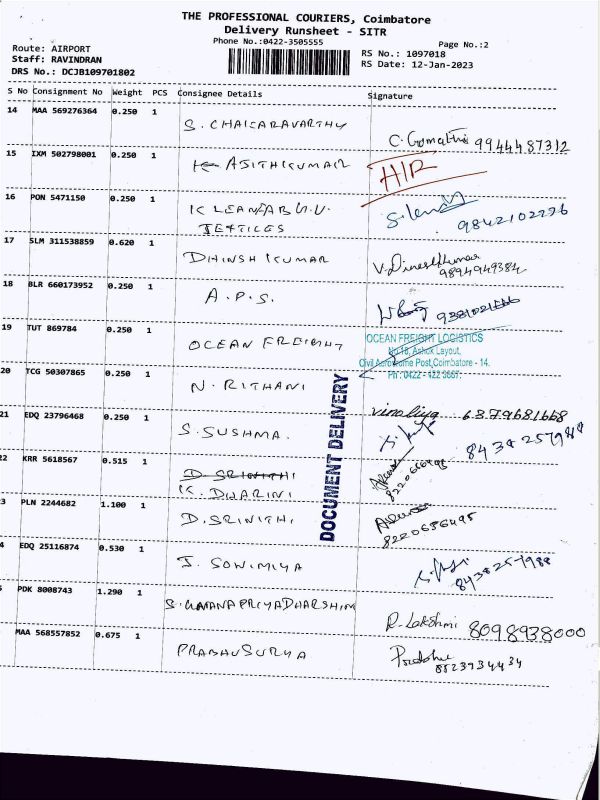 THE PROFESSIONAL COURIERS, Coimbatore
Delivery Runsheet - SITR
Phone No.:0422-3505555
Page No.:2
Route: AIRPORT
RS No.: 1097018
Staff: RAVINDRAN
RS Date: 12-Jan-2023
DRS No.: DCJB109701802
S No Consignment No Weight PCS Consignee Details Signature
14 MAA 569276364 0.250 1 S. CHAKARAVARTHY 9944487312
15 IXM 502798001 0.250 1 AJITHKUMAR H/R
16 PON 5471150 0.250 1
TEXTILES 9842102226
17 SLM 311538859 0.620 1 DHINSH KUMAR V. Dineshkumar
9894949384
18 BLR 660173952 0.250 1 A.P.S.
19 TUT 869784 0.250 1 OCEAN FREIGHT
OCEAN FREIGHT LOGISTICS
No.18, Ashok Layout,
Civil Aerodrome Post, Coimbatore - 14.
Ph : 0422 - 422 3667
20 TCG 50307865 1 N. RITHANI 6379681668
DOCUMENT DELIVERY
21 EDQ 23796468 0.250 1 S. SUSHMA.
22 KRR 5618567 0.515 1 D SRINITHI
K. DHARINI
3 PLN 2244682 1.100 1 D. SRINITHI
8220656495
4 EDQ 25116874 0.530 1 J. SOWMIYA
5 PDK 8008743 1.290 1 R. Lakshmi 8098938000
MAA 568557852 0.675 1 PRABHU SURYA Prabhu